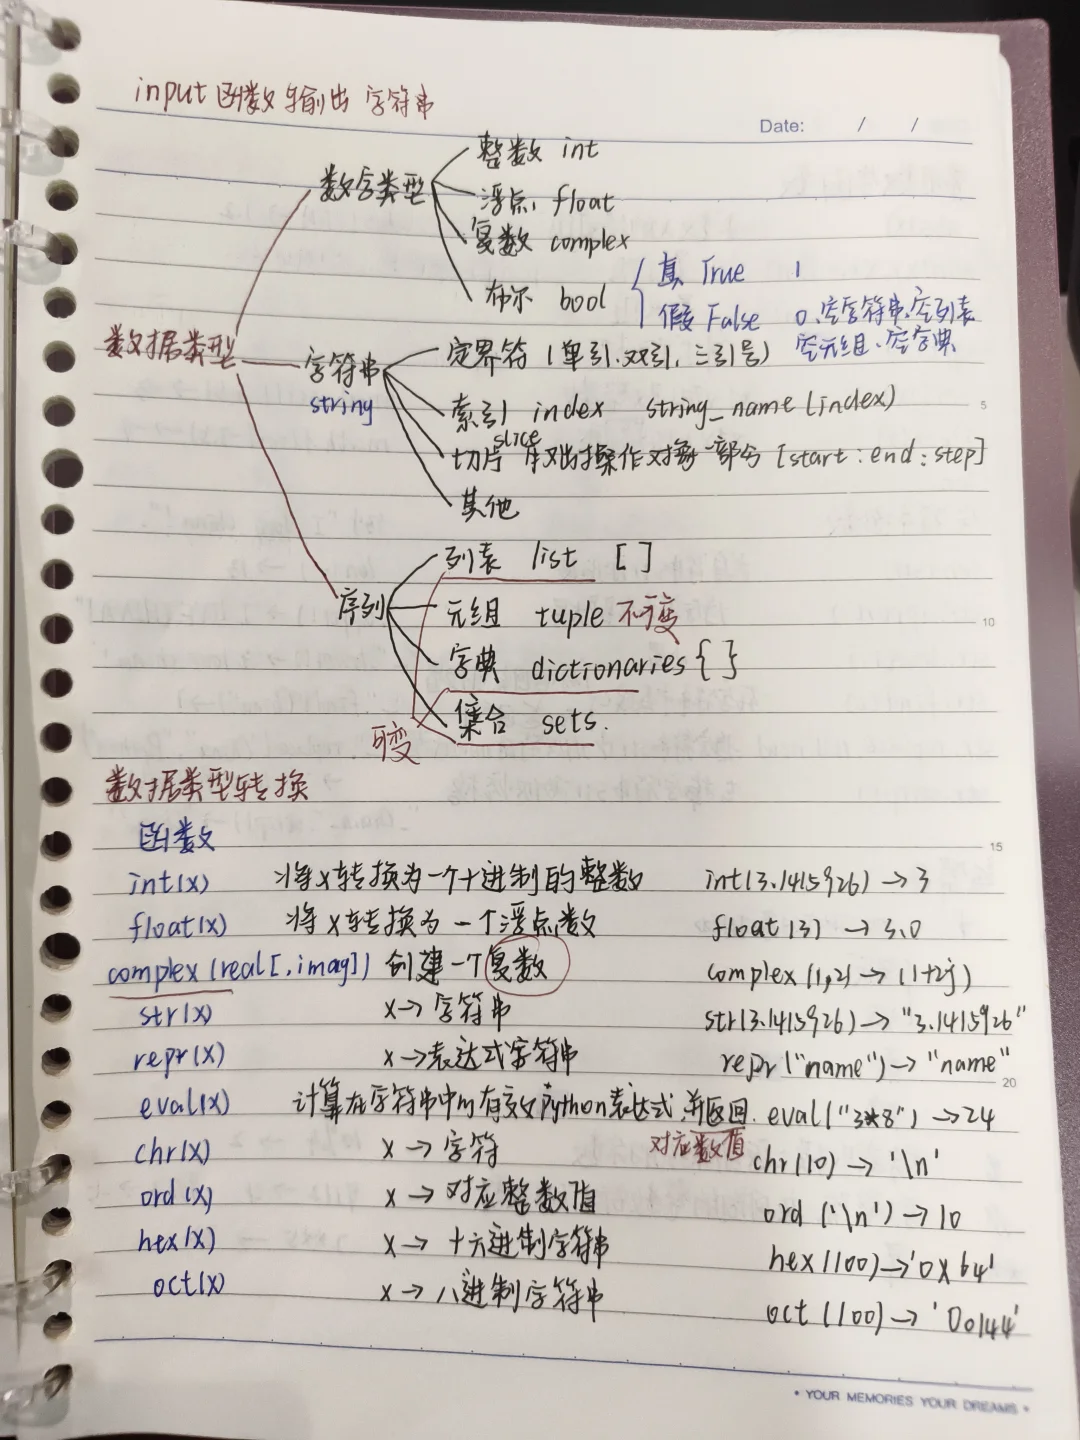 input函数输出 字符串
Date: / /
数字类型
整数 int
浮点 float
复数 complex
布尔 bool
真 True 1
假 False 0、空字符串、空列表
空元组、空字典
数据类型
字符串
string
定界符 (单引、双引、三引号)
索引 index string_name(index)
slice
切片 操作对象一部分 [start:end:step]
其他
序列
列表 list [ ]
元组 tuple 不可变
字典 dictionaries { }
集合 sets.
可变
数据类型转换
函数
int(x) 将x转换为一个十进制的整数 int(3.1415926)→3
float(x) 将x转换为一个浮点数 float(3) →3.0
complex(real[,imag]) 创建一个复数 complex(1,2)→(1+2j)
str(x) x→字符串 str(3.1415926)→"3.1415926"
repr(x) x→表达式字符串 repr("name")→"name"
eval(x) 计算在字符串中的有效Python表达式,并返回 eval("3*8")→24
对应数值
chr(x) x→字符 chr(10)→'\n'
ord(x) x→对应整数值 ord('\n')→10
hex(x) x→十六进制字符串 hex(100)→'0x64'
oct(x) x→八进制字符串 oct(100)→'0o144'
5
10
15
20
• YOUR MEMORIES YOUR DREAMS •